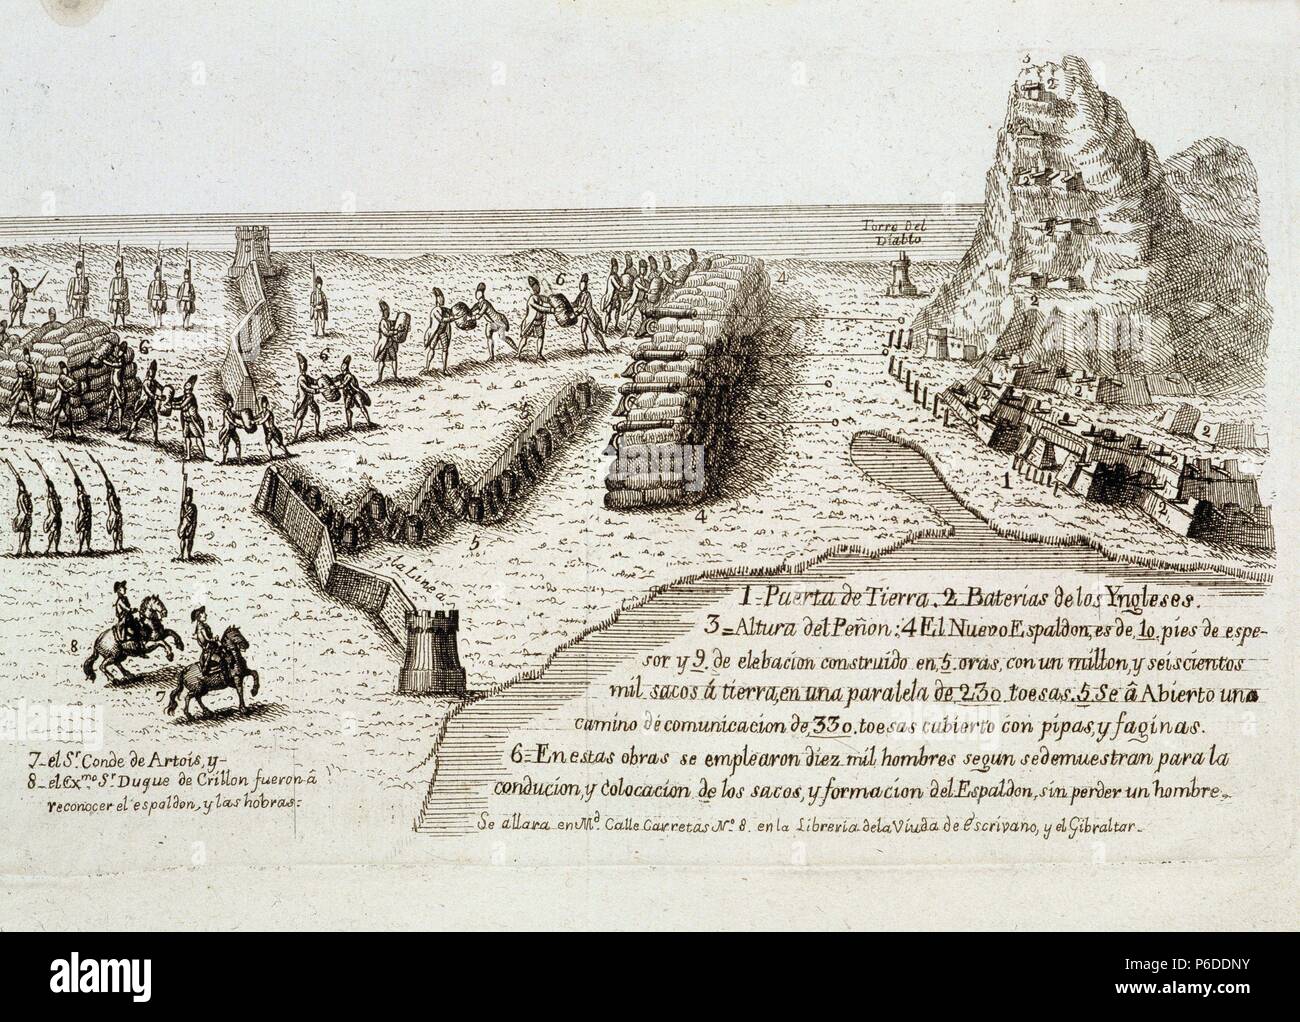 Torre del
Diablo
la Linea
1=Puerta de Tierra. 2 Baterias de los Yngleses.
3=Altura del Peñon: 4 El Nuevo Espaldon, es de 10 pies de espe-
sor y 9 de elebacion construido en 5 oras, con un millon, y seiscientos
mil sacos á tierra, en una paralela de 230 toesas. 5 Se á Abierto una
camino de comunicacion de 330 toesas cubierto con pipas, y faginas.
6=En estas obras se emplearon diez mil hombres segun se demuestran para la
conducion, y colocacion de los sacos, y formacion del Espaldon, sin perder un hombre.
Se allara en Md. Calle Carretas No. 8. en la Libreria de la Viuda de Escrivano, y el Gibraltar.
7_el Sr. Conde de Artois, y-
8_el Exmo. Sr. Duque de Crillon fueron á
reconocer el espaldon, y las hobras:
3
2
2
2
2
2
2
1
4
4
5
5
6
6
6
7
8
alamy
Image ID: P6DDNY
www.alamy.com